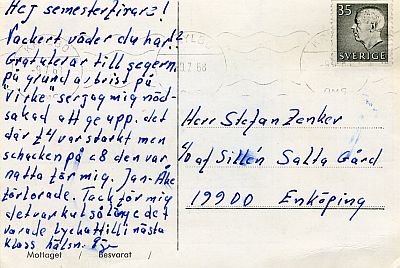 Hej semesterfirare!
Vackert väder du har!
Gratulerar till segern,
på grund av brist på
"virke" ser jag mig nöd-
sakad att ge upp. det
där f4 var starkt men
schacken på c8 den var
natta för mig. Jan-Åke
förlorade. Tack för mig
det var kul så länge det
varade Lycka till i nästa
klass hälsn.
Mottaget / Besvarat /
35
SVERIGE
7 68
Herr Stefan Zenker
c/o af Sillén Salta Gård
19900 Enköping